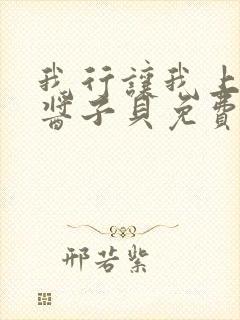 我行讓我上
醬子貝免費
邢若紫